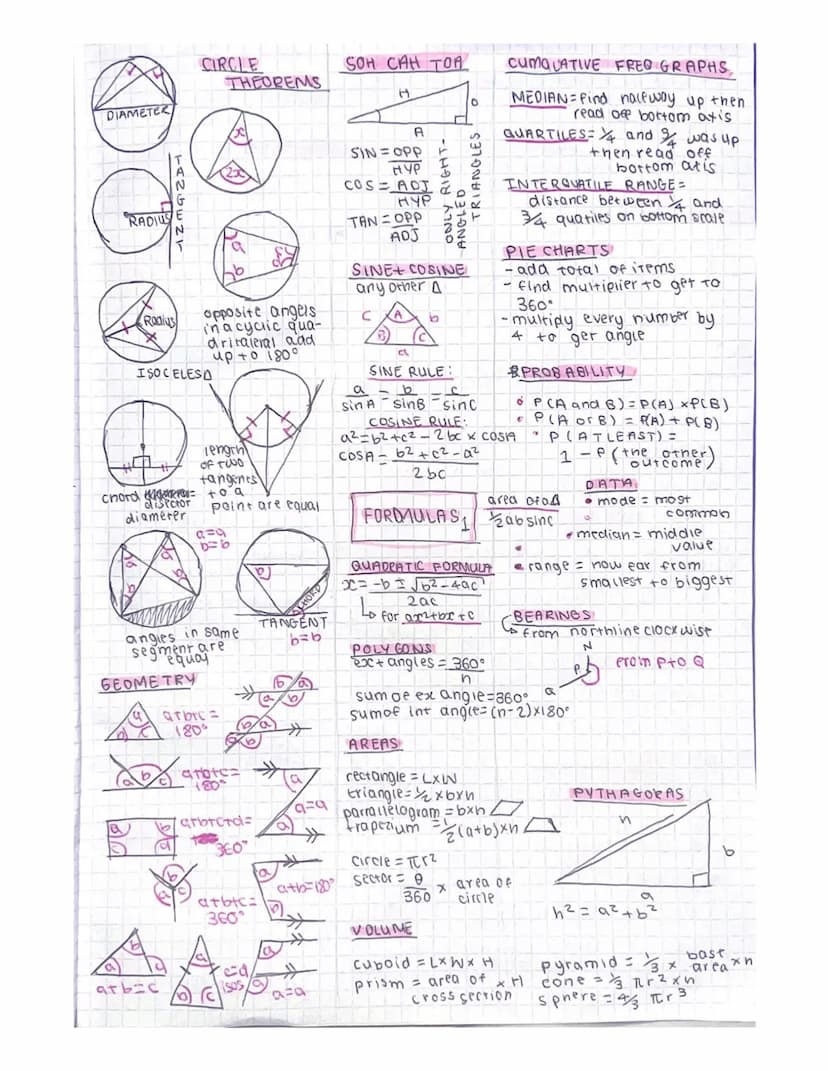 CIRCLE
THEOREMS
DIAMETER
x
2x
RADIUS
TANGENT
a
b
Radius
ISOCELES Δ
opposite angels
in a cyclic qua-
driraleral add
up to 180°
chord
bisector
diameter
length
of two
tangents
to a
point are equal
a=a
b=b
angles in same
segment are
equal
CHORD
TANGENT
b=b
GEOMETRY
a+b+c=
180°
a+b+c=
180°
a=a
a+b+c+d=
360°
a+b+c=
360°
a+b=180°
a+b=c
c=d
isos
a=a
SOH CAH TOA
H
O
A
SIN = OPP
HYP
COS = ADJ
HYP
TAN = OPP
ADJ
ONLY RIGHT-
ANGLED
TRIANGLES
SINE + COSINE
any other Δ
C A b
B C
a
SINE RULE:
a = b = c
sinA sinB sinC
COSINE RULE:
a² = b² + c² - 2bc x cosA
cosA = b² + c² - a²
2bc
FORMULAS 1
area of a Δ
½ab sinc
QUADRATIC FORMULA
x = -b ± √b² - 4ac
2ac
for ax²+bx+c
POLYGONS
ext angles = 360°
n
sum of ex angle=360°
sum of int angle=(n-2)x180°
AREAS
rectangle = L x W
triangle = ½ x b x h
parrallelogram = b x h
trapezium = ½(a+b)xh
circle = πr²
sector = θ x area of
360 circle
VOLUME
cuboid = L x W x H
prism = area of x H
cross section
pyramid = ⅓ x base
area x h
cone = ⅓ πr² x h
sphere = 4/3 πr³
CUMULATIVE FREQ GRAPHS
MEDIAN = find halfway up then
read off bottom axis
QUARTILES = ¼ and ¾ was up
then read off
bottom axis
INTERQUATILE RANGE =
distance between ¼ and
¾ quatiles on bottom scale
PIE CHARTS
- add total of items
- find multiplier to get to
360°
- multiply every number by
4 to get angle
PROBABILITY
• P(A and B) = P(A) x P(B)
• P(A or B) = P(A) + P(B)
• P(AT LEAST) =
1 - P(the other
outcome)
DATA
• mode = most
common
• median = middle
value
• range = how far from
smallest to biggest
BEARINGS
from northline clockwist
N
P
Q
from P to Q
PYTHAGORAS
h
b
a
h² = a² + b²